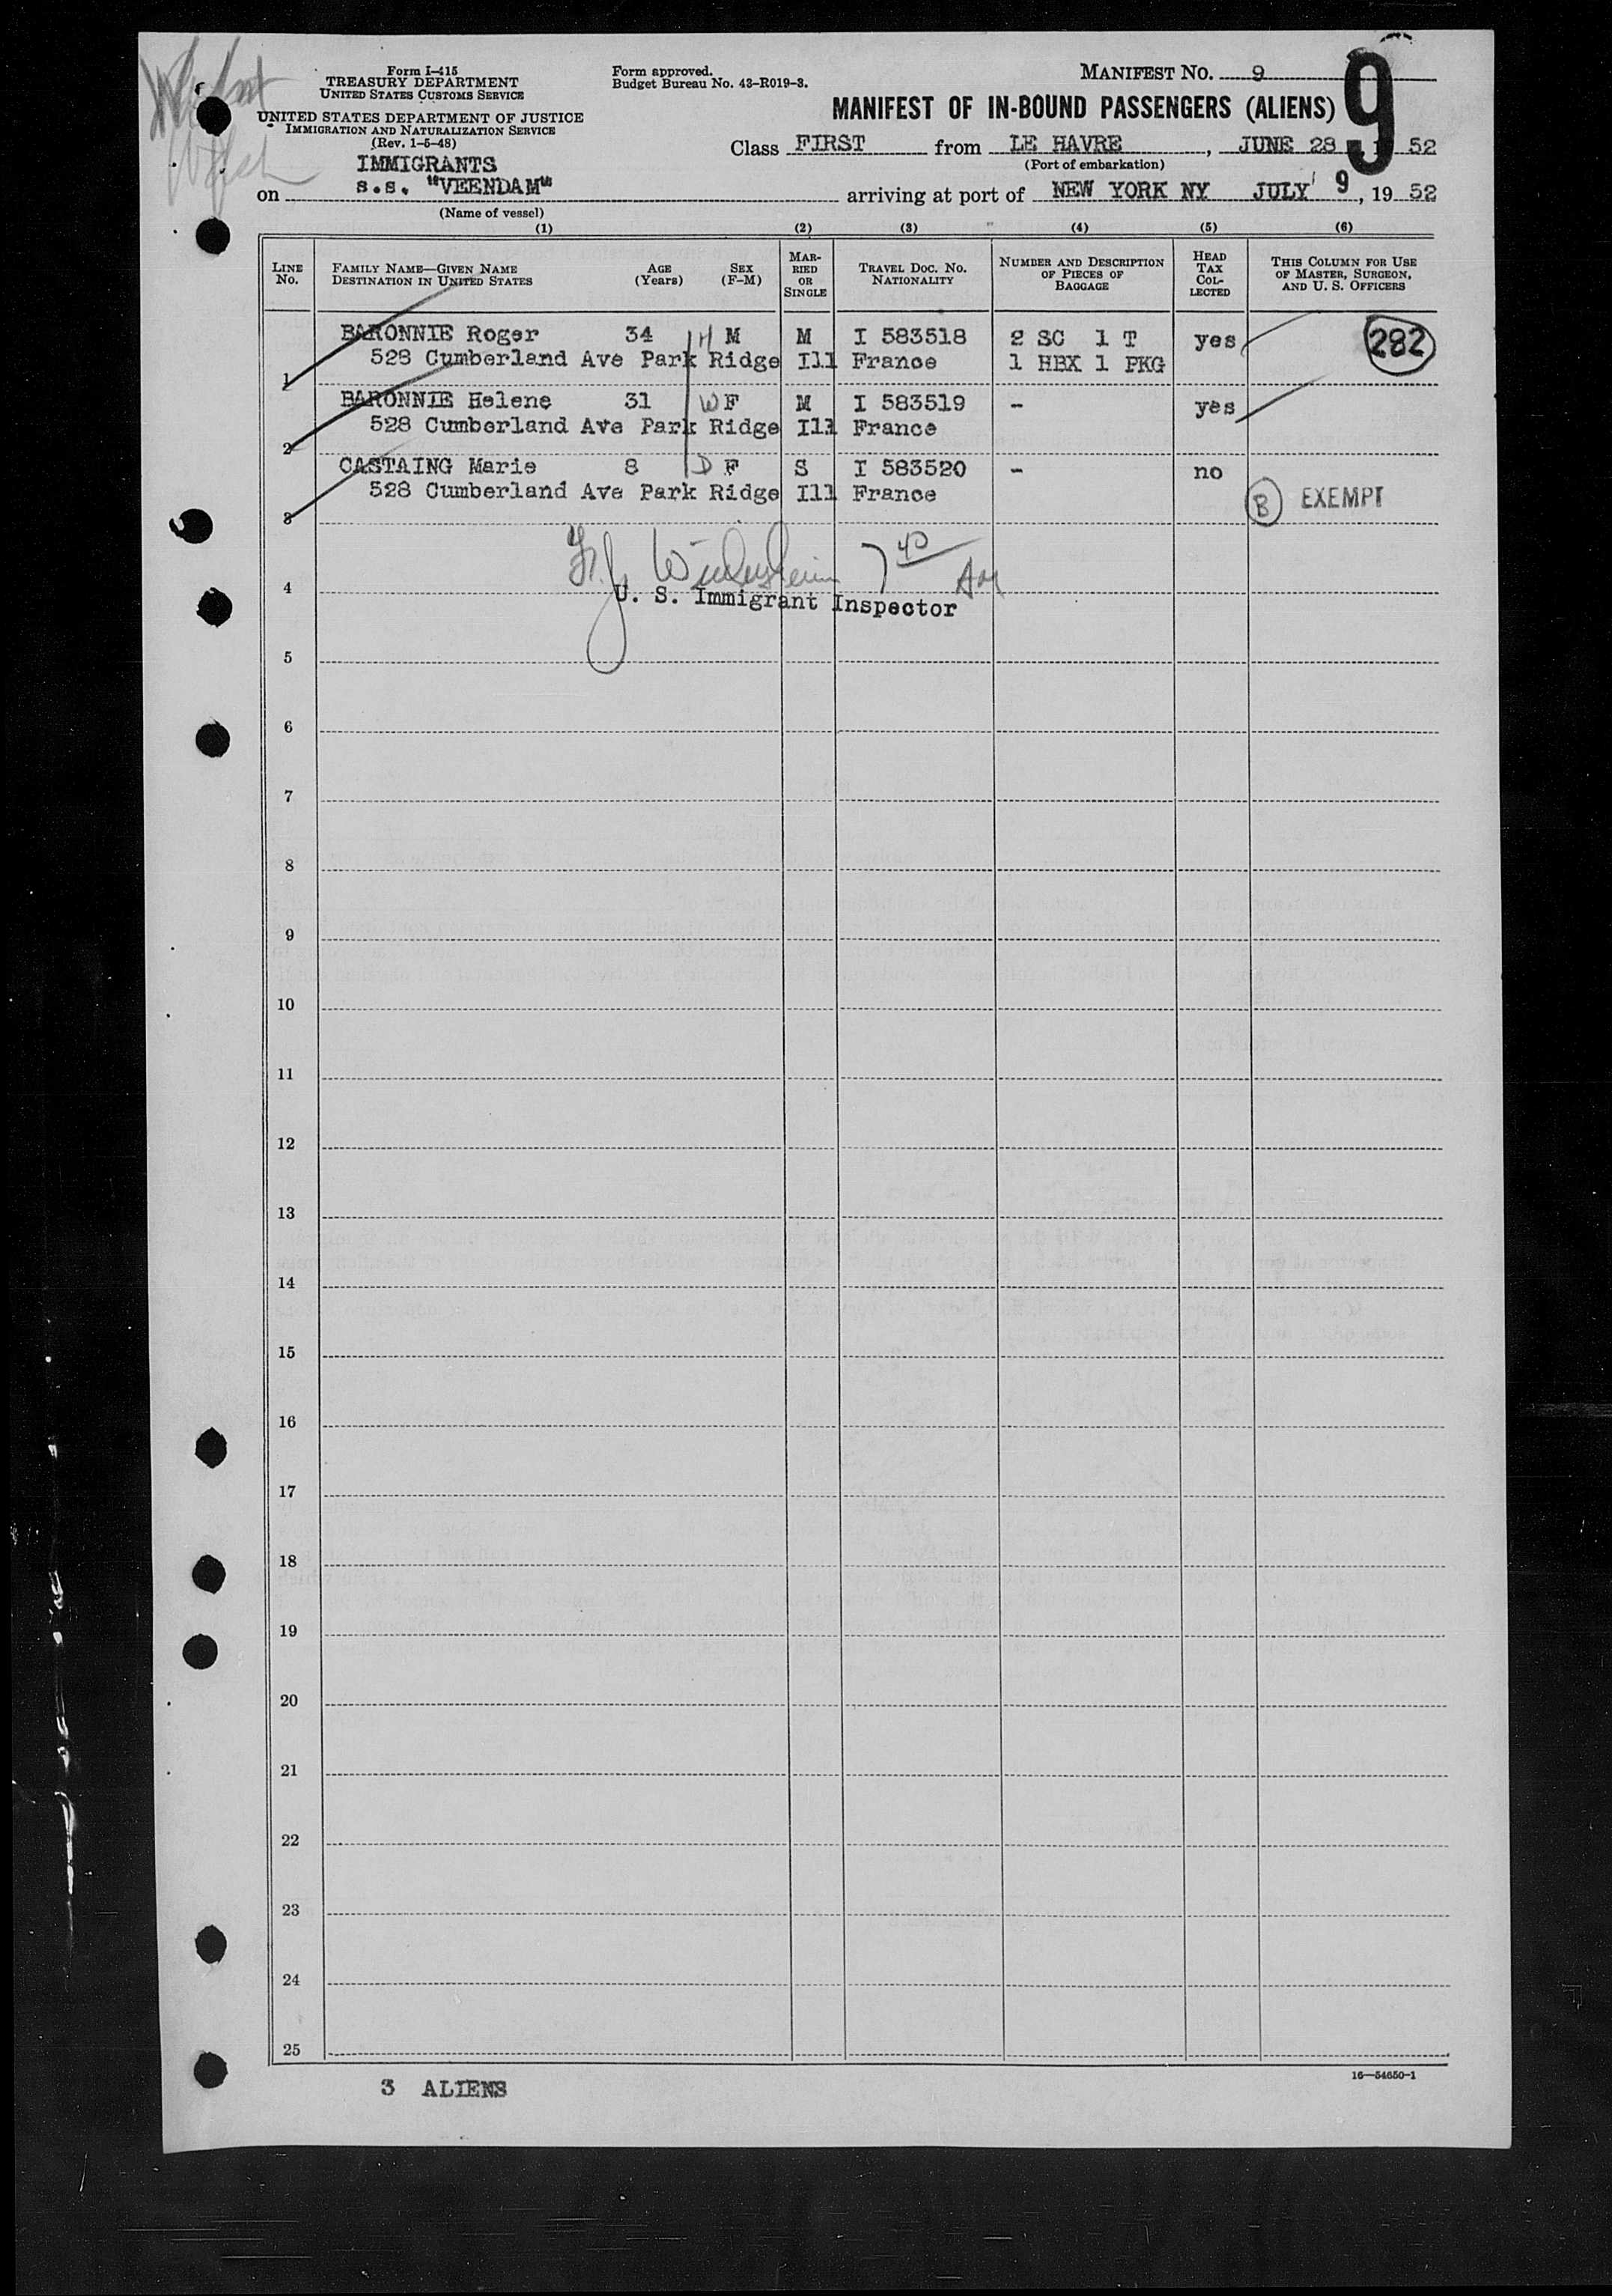 Form I-415
TREASURY DEPARTMENT
UNITED STATES CUSTOMS SERVICE
UNITED STATES DEPARTMENT OF JUSTICE
IMMIGRATION AND NATURALIZATION SERVICE
(Rev. 1-5-48)
Form approved.
Budget Bureau No. 43-R019-3.
MANIFEST NO. 9
9
MANIFEST OF IN-BOUND PASSENGERS (ALIENS)
IMMIGRANTS
Class FIRST from LE HAVRE, JUNE 28, 1952
(Port of embarkation)
on s.s. "VEENDAM" arriving at port of NEW YORK NY JULY 9, 1952
(Name of vessel)
(1) (2) (3) (4) (5) (6)
LINE NO.
FAMILY NAME—GIVEN NAME
DESTINATION IN UNITED STATES
AGE (Years)
SEX (F-M)
MARRIED OR SINGLE
TRAVEL DOC. NO. NATIONALITY
NUMBER AND DESCRIPTION OF PIECES OF BAGGAGE
HEAD TAX COLLECTED
THIS COLUMN FOR USE OF MASTER, SURGEON, AND U. S. OFFICERS
BARONNIE Roger 34 H M M I 583518 2 SC 1 T yes 282
1 528 Cumberland Ave Park Ridge Ill France 1 HBX 1 PKG
BARONNIE Helene 31 W F M I 583519 - yes
2 528 Cumberland Ave Park Ridge Ill France
CASTAING Marie 8 D F S I 583520 - no
3 528 Cumberland Ave Park Ridge Ill France B EXEMPT
7 40 AM
4 U. S. Immigrant Inspector
5
6
7
8
9
10
11
12
13
14
15
16
17
18
19
20
21
22
23
24
25
3 ALIENS
16—54650-1